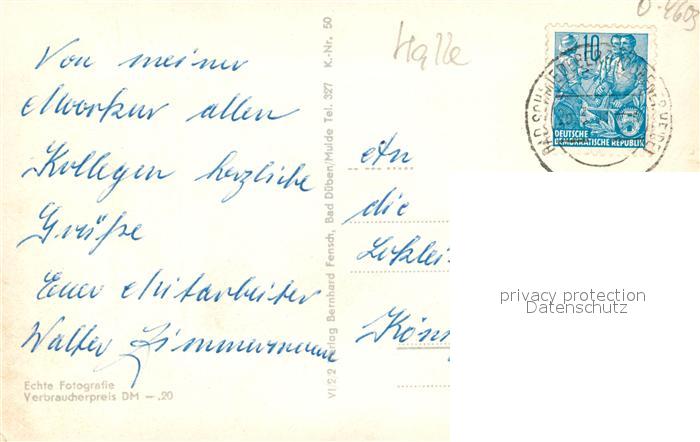 Von meiner
Moorkur allen
Kollegen herzliche
Grüße
Euer Mitarbeiter
Walter Zimmermann
Echte Fotografie
Verbraucherpreis DM —,20
VI 2 2 Verlag Bernhard Fensch, Bad Düben/Mulde Tel. 327 K.-Nr. 50
Halle
O-4603
10
DEUTSCHE
DEMOKRATISCHE REPUBLIK
BAD SCHMIEDEBERG
An
die
Loklei
Köni
privacy protection
Datenschutz